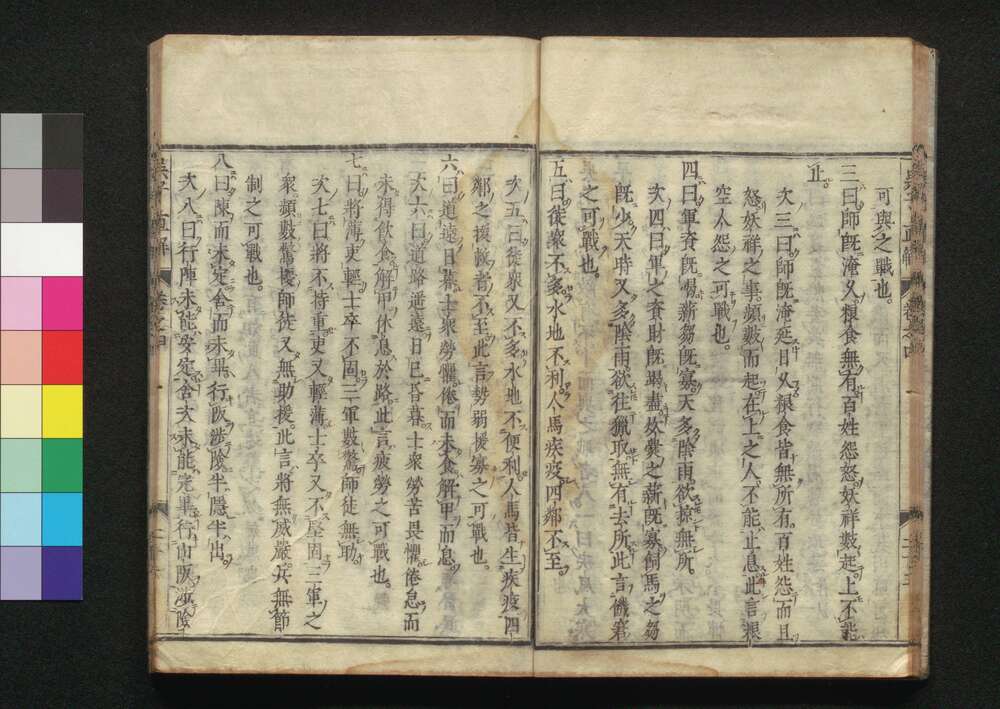 可與之戰也。
三曰師既淹久糧食無有百姓怨怒妖祥數起上不能
止。
次三曰師既淹延日久糧食皆無所有百姓怨而且
怒妖祥之事頻數而起在上之人不能止息此言糧
空人怨之可戰也。
四曰軍資既竭薪芻既寡天多陰雨欲掠無所。
次四曰軍之資財既竭盡炊爨之薪既寡飼馬之芻
既少天時又多陰雨欲往獵取無有去所此言饑窘
之可戰也。
五曰徒衆不多水地不利人馬疾疫四鄰不至。
次五曰徒衆又不多水地不便利人馬皆生疾疫四
鄰之援救者不至此言勢弱援寡之可戰也。
六曰道遠日暮士衆勞懼倦而未食解甲而息
次六曰道路遙遠日已昏暮士衆勞苦畏懼倦怠而
未得飲食解甲休息於路此言疲勞之可戰也。
七曰將薄吏輕士卒不固三軍數驚師徒無助。
次七曰將不持重吏又輕薄士卒又不堅固三軍之
衆頻數驚擾師徒又無助援此言將無威嚴兵無節
制之可戰也。
八曰陳而未定舍而未畢行阪涉險半隱半出。
次八曰行陣未能安定舍次未能完畢行山阪涉險